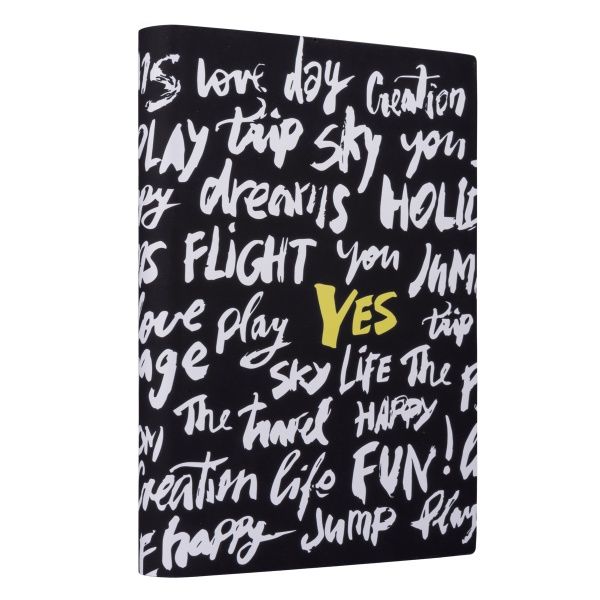 love day Creation
PLAY trip sky you
dreams HOLID
FLIGHT you JUMP
love play YES trip
age SKY LIFE The
The travel HAPPY
Creation life FUN!
happy JUMP Play